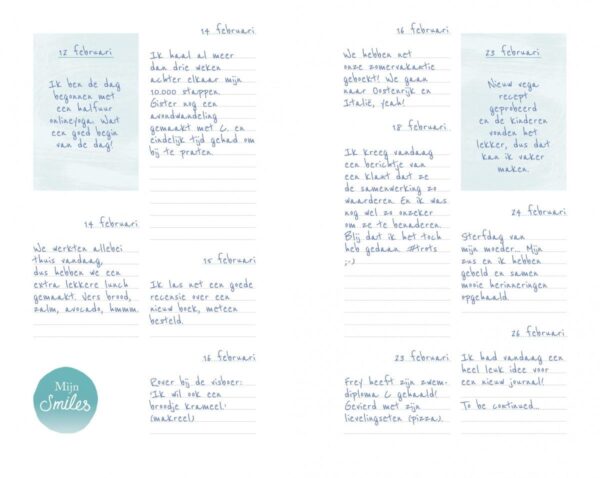 12 februari
Ik ben de dag
begonnen met
een halfuur
onlineyoga. Wat
een goed begin
van de dag!
14 februari
We werkten allebei
thuis vandaag,
dus hebben we een
extra lekkere lunch
gemaakt. Vers brood,
zalm, avocado, hmmm.
Mijn
Smiles
14 februari
Ik haal al meer
dan drie weken
achter elkaar mijn
10.000 stappen.
Gister nog een
avondwandeling
gemaakt met C. en
eindelijk tijd gehad om
bij te praten.
15 februari
Ik las net een goede
recensie over een
nieuw boek, meteen
besteld.
16 februari
Rover bij de visboer:
'Ik wil ook een
broodje krameel.'
(makreel)
16 februari
We hebben net
onze zomervakantie
geboekt! We gaan
naar Oostenrijk en
Italië, yeah!
18 februari
Ik kreeg vandaag
een berichtje van
een klant dat ze
de samenwerking zo
waarderen. En ik was
nog wel zo onzeker
om ze te benaderen.
Blij dat ik het toch
heb gedaan #trots
;-)
23 februari
Frey heeft zijn zwem-
diploma C gehaald!
Gevierd met zijn
lievelingseten (pizza).
23 februari
Nieuw vega
recept
geprobeerd
en de kinderen
vonden het
lekker, dus dat
kan ik vaker
maken.
24 februari
Sterfdag van
mijn moeder... Mijn
zus en ik hebben
gebeld en samen
mooie herinneringen
opgehaald.
26 februari
Ik had vandaag een
heel leuk idee voor
een nieuw journal!
To be continued...